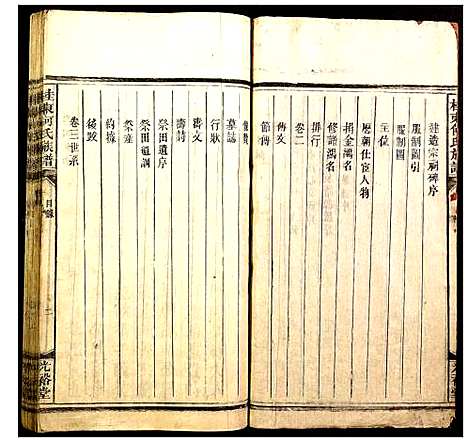 桂東何氏族譜
建造宗祠碑序
服制圖引
服制圖
主位
歷朝仕宦人物
捐金鴻名
修譜鴻名
排行
卷二
傳文
節傳
像贊
墓誌
行狀
壽詩
壽文
祭田遺序
祭田遺調
祭産
約據
後跋
卷三世系
桂東何氏族譜
目錄
二
光裕堂